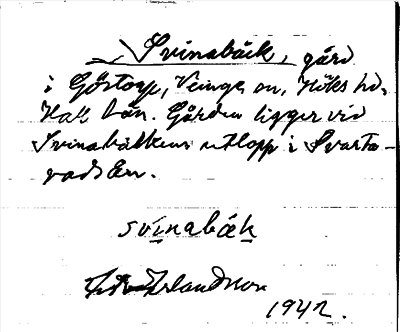 Svinabäck, gård
i Göstorp, Veinge sn, Höks hd,
Hall. län. Gården ligger vid
Svinabäckens utlopp i Svarta-
vadsån.
svinabäk
1942.